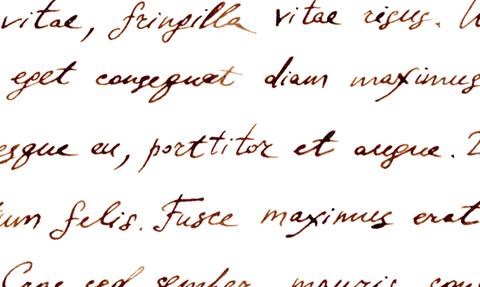 vitae, fringilla vitae risus.
eget consequat diam maximus
esque eu, porttitor et augue.
um felis. Fusce maximus erat
sed semper mauris